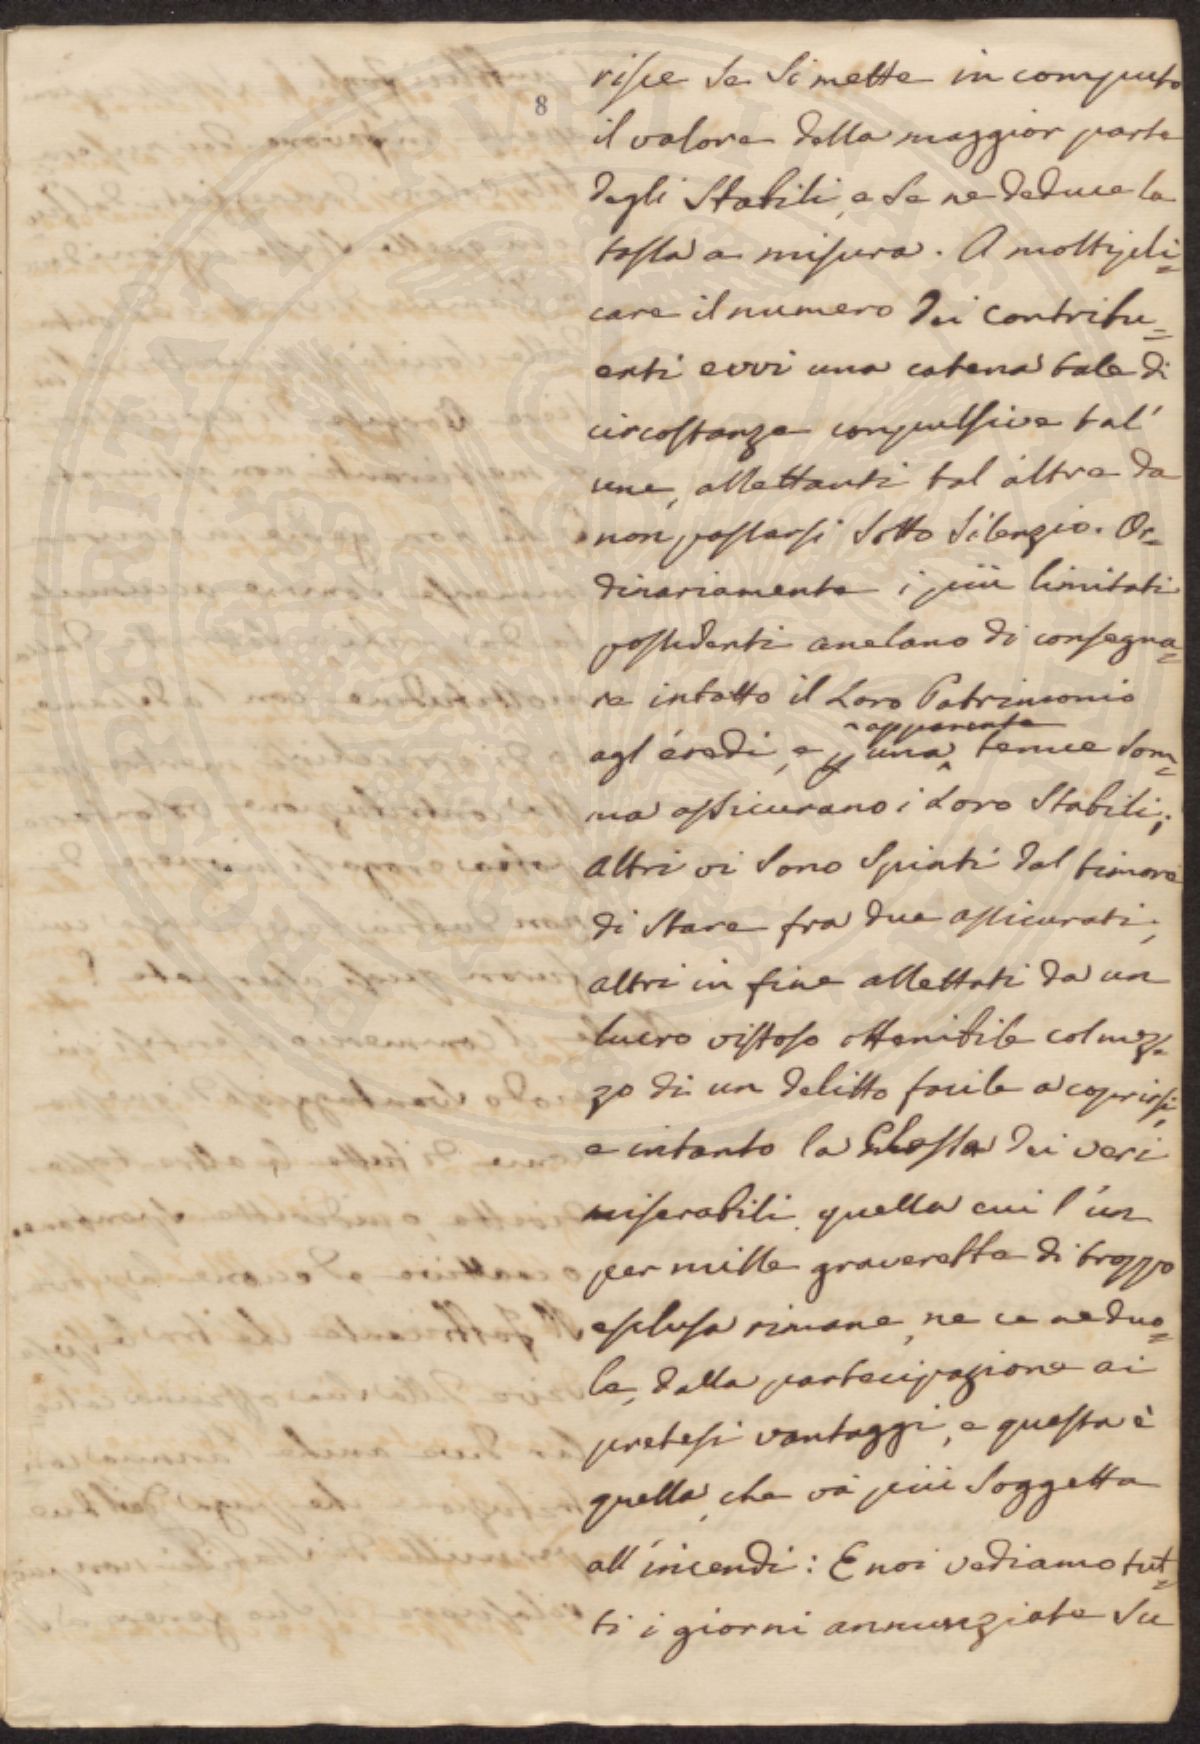 8
risce se si mette in computo
il valore della maggior parte
degli Stabili, e se ne deduce la
tassa a misura. A moltipli=
care il numero dei contribu=
enti evvi una catena tale di
circostanze compulsive tal'
une, allettanti tal altre da
non passarsi sotto silenzio. Or=
dinariamente i più limitati
possidenti anelano di consegna=
re intatto il loro Patrimonio
agl'eredi, e p una apparente tenue som=
ma assicurano i loro Stabili;
altri vi sono spinti dal timore
di stare fra due assicurati;
altri in fine allettati da un
lucro vistoso ottenibile col mez=
zo di un delitto facile a coprirsi,
e intanto la Classe dei veri
miserabili, quella cui l'un
per mille graverebbe di troppo
esclusa rimane, ne ce ne duo=
le, dalla partecipazione ai
pretesi vantaggi, e questa è
quella, che và più soggetta
all'incendi: E noi vediamo tut=
ti i giorni annunziate su
PROSPERITATI PUBLICAE